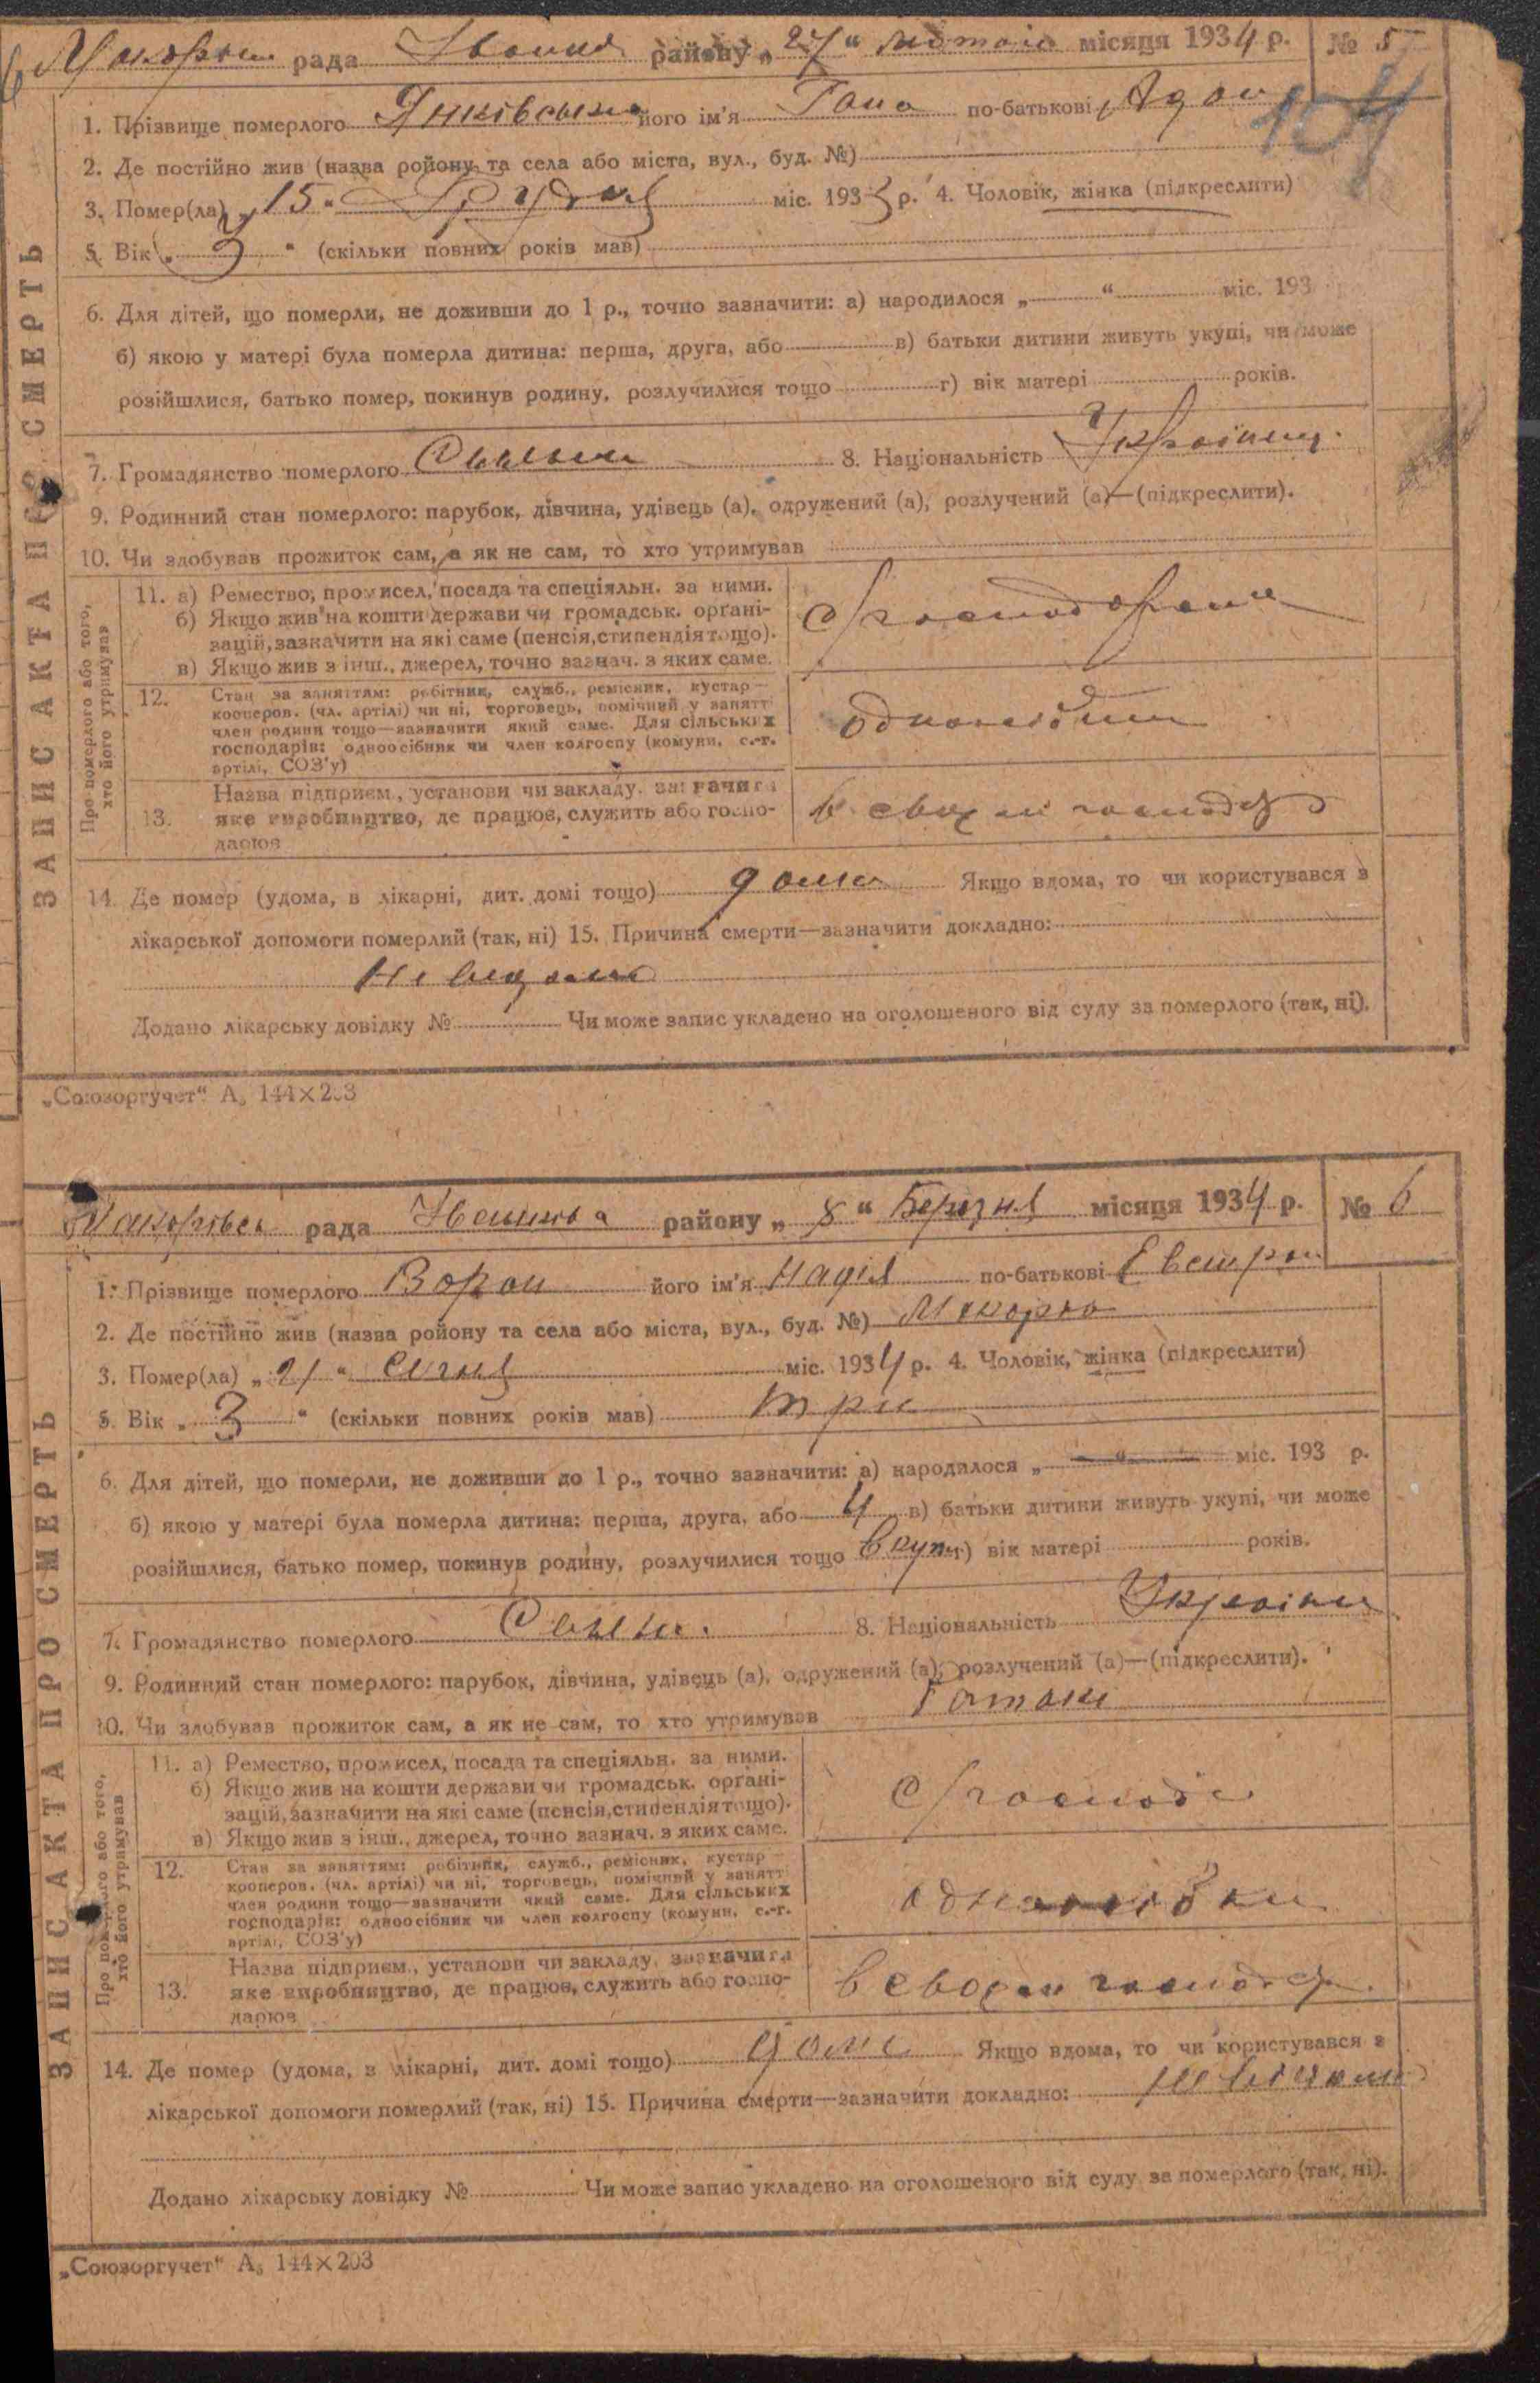 рада району „ 27 “ лютого місяця 1934 р. № 5
104
1. Прізвище померлого Янківська його ім'я Гана по-батькові Адом
2. Де постійно жив (назва ройону та села або міста, вул., буд. №)
3. Помер(ла) „ 15 “ Грудня міс. 1933 р. 4. Чоловік, жінка (підкреслити)
5. Вік „ 3 “ (скільки повних років мав)
6. Для дітей, що померли, не доживши до 1 р., точно зазначити: а) народилося „ “ міс. 193
б) якою у матері була померла дитина: перша, друга, або в) батьки дитини живуть укупі, чи може
розійшлися, батько помер, покинув родину, розлучилися тощо г) вік матері років.
7. Громадянство померлого 8. Національність Українец
9. Родинний стан померлого: парубок, дівчина, удівець (а), одружений (а), розлучений (а)—(підкреслити).
10. Чи здобував прожиток сам, а як не сам, то хто утримував
ЗАПИС АКТА ПРО СМЕРТЬ
Про померлого або того, хто його утримував
11. а) Ремество, промисел, посада та спеціяльн. за ними.
б) Якщо жив на кошти держави чи громадськ. орґані-
зацій, зазначити на які саме (пенсія, стипендія тощо).
в) Якщо жив з інш., джерел, точно зазнач. з яких саме.
12. Стан за заняттям: робітник, служб., ремісник, кустар—
кооперов. (чл. артілі) чи ні, торговець, помічний у занятт
член родини тощо—зазначити який саме. Для сільських
господарів: одноосібник чи член колгоспу (комуни, с.-г.
артілі, СОЗ'у)
13. Назва підприєм., установи чи закладу, зазначити
яке виробництво, де працює, служить або госпо-
дарює
в своем господар
14. Де помер (удома, в лікарні, дит. домі тощо) дома Якщо вдома, то чи користувався з
лікарської допомоги померлий (так, ні) 15. Причина смерти—зазначити докладно:
Невидомо
Додано лікарську довідку № Чи може запис укладено на оголошеного від суду за померлого (так, ні).
„Союзоргучет“ А5 144×203
рада району „ 8 “ Березня місяця 1934 р. № 6
1. Прізвище померлого Ворон його ім'я Надія по-батькові
2. Де постійно жив (назва ройону та села або міста, вул., буд. №) Макорко
3. Помер(ла) „ 21 “ Сичня міс. 1934 р. 4. Чоловік, жінка (підкреслити)
5. Вік „ 3 “ (скільки повних років мав) три
6. Для дітей, що померли, не доживши до 1 р., точно зазначити: а) народилося „ “ міс. 193 р.
б) якою у матері була померла дитина: перша, друга, або 4 в) батьки дитини живуть укупі, чи може
розійшлися, батько помер, покинув родину, розлучилися тощо вкупи г) вік матері років.
7. Громадянство померлого 8. Національність Українка
9. Родинний стан померлого: парубок, дівчина, удівець (а), одружений (а), розлучений (а)—(підкреслити).
10. Чи здобував прожиток сам, а як не сам, то хто утримував
ЗАПИС АКТА ПРО СМЕРТЬ
Про померлого або того, хто його утримував
11. а) Ремество, промисел, посада та спеціяльн. за ними.
б) Якщо жив на кошти держави чи громадськ. орґані-
зацій, зазначити на які саме (пенсія, стипендія тощо).
в) Якщо жив з інш., джерел, точно зазнач. з яких саме.
12. Стан за заняттям: робітник, служб., ремісник, кустар—
кооперов. (чл. артілі) чи ні, торговець, помічний у занятт
член родини тощо—зазначити який саме. Для сільських
господарів: одноосібник чи член колгоспу (комуни, с.-г.
артілі, СОЗ'у)
13. Назва підприєм., установи чи закладу, зазначити
яке виробництво, де працює, служить або госпо-
дарює
в своем господар
14. Де помер (удома, в лікарні, дит. домі тощо) дома Якщо вдома, то чи користувався з
лікарської допомоги померлий (так, ні) 15. Причина смерти—зазначити докладно: невідомо
Додано лікарську довідку № Чи може запис укладено на оголошеного від суду за померлого (так, ні).
„Союзоргучет“ А5 144×203